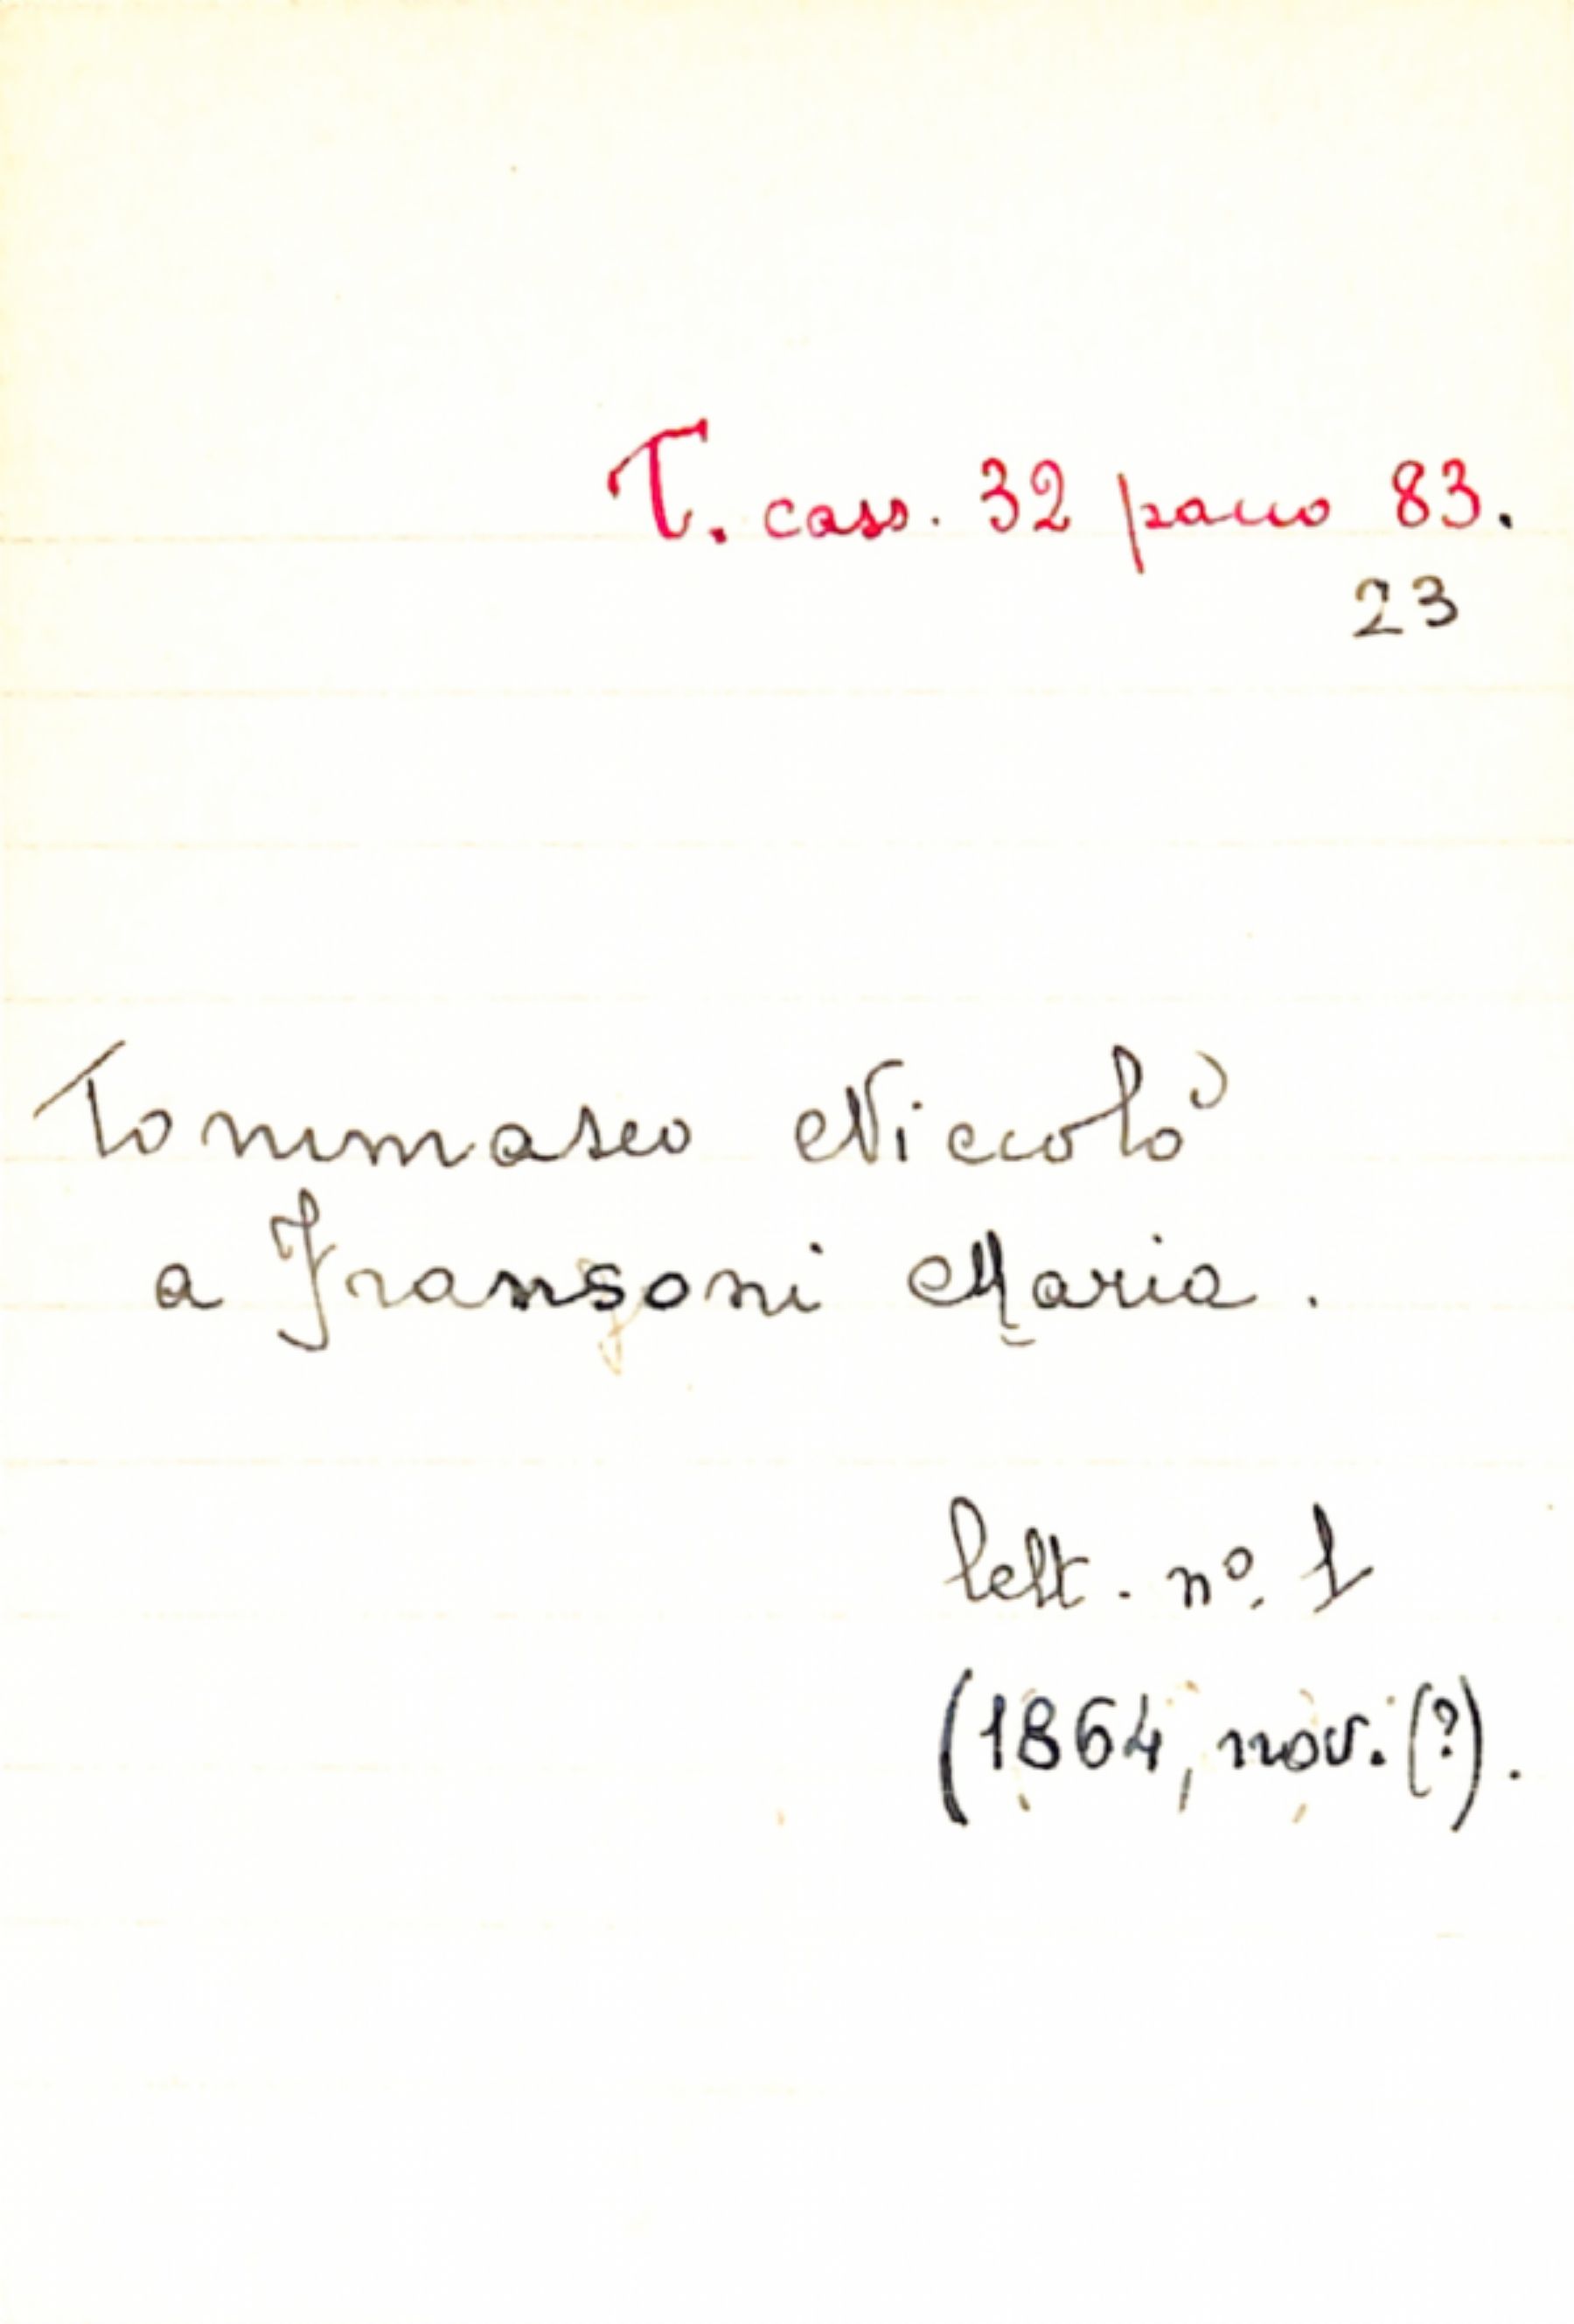 T. cass. 32 pacco 83.
23
Tommaseo Niccolò
a Fransoni Maria.
lett. nº. 1
(1864, nov. (?).